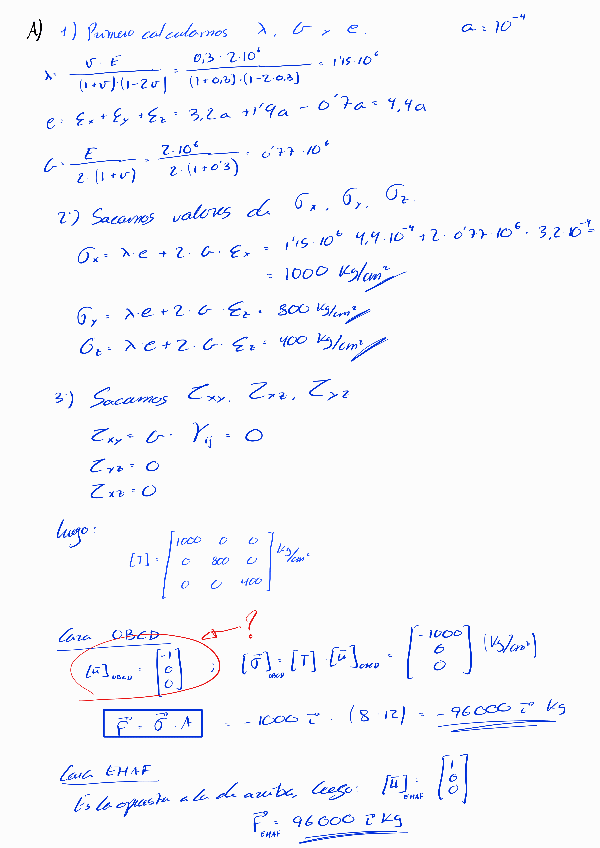 A) 1) Primero calculamos λ, G y e. a = 10^-4
λ = (ν · E) / ((1+ν)·(1-2ν)) = (0,3 · 2·10^6) / ((1+0,3)·(1-2·0,3)) = 1'15·10^6
e = εx + εy + εz = 3,2a + 1'9a - 0'7a = 4,4a
G = E / (2·(1+ν)) = 2·10^6 / (2·(1+0'3)) = 0'77·10^6
2º) Sacamos valores de σx, σy, σz.
σx = λ·e + 2·G·εx = 1'15·10^6 · 4,4·10^-4 + 2·0'77 10^6 · 3,2 10^-4 =
= 1000 kg/cm²
σy = λ·e + 2·G·εz = 800 kg/cm²
σz = λ·e + 2·G·εz = 400 kg/cm²
3º) Sacamos τxy, τxz, τyz
τxy = G · γij = 0
τyz = 0
τxz = 0
Luego:
[T] = [1000 0 0; 0 800 0; 0 0 400] kg/cm²
Cara OBCD ?
[ū]OBCD = [-1; 0; 0] ; [σ⃗]OBCD = [T]·[ū]OBCD = [-1000; 0; 0] (kg/cm²)
F⃗ = σ⃗ · A = -1000 i⃗ · (8·12) = -96000 i⃗ kg
Cara EHAF
Es la opuesta a la de arriba, luego: [ū]EHAF = [1; 0; 0]
F⃗EHAF = 96000 i⃗ kg